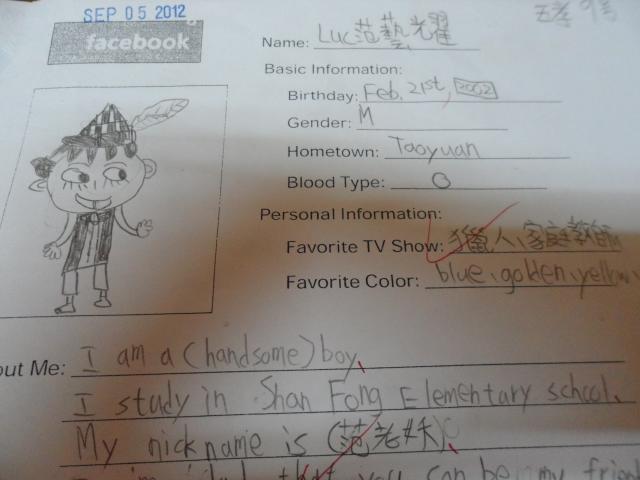 SEP 05 2012
facebook
Name: Luc范藝光耀
Basic Information:
Birthday: Feb. 21st, 2002
Gender: M
Hometown: Taoyuan
Blood Type: O
Personal Information:
Favorite TV Show: 獵人、家庭教師
Favorite Color: blue、golden、yellow
out Me: I am a (handsome) boy、
I study in Shan Fong Elementary school、
My nickname is (范老妖)、
that you can be my friend